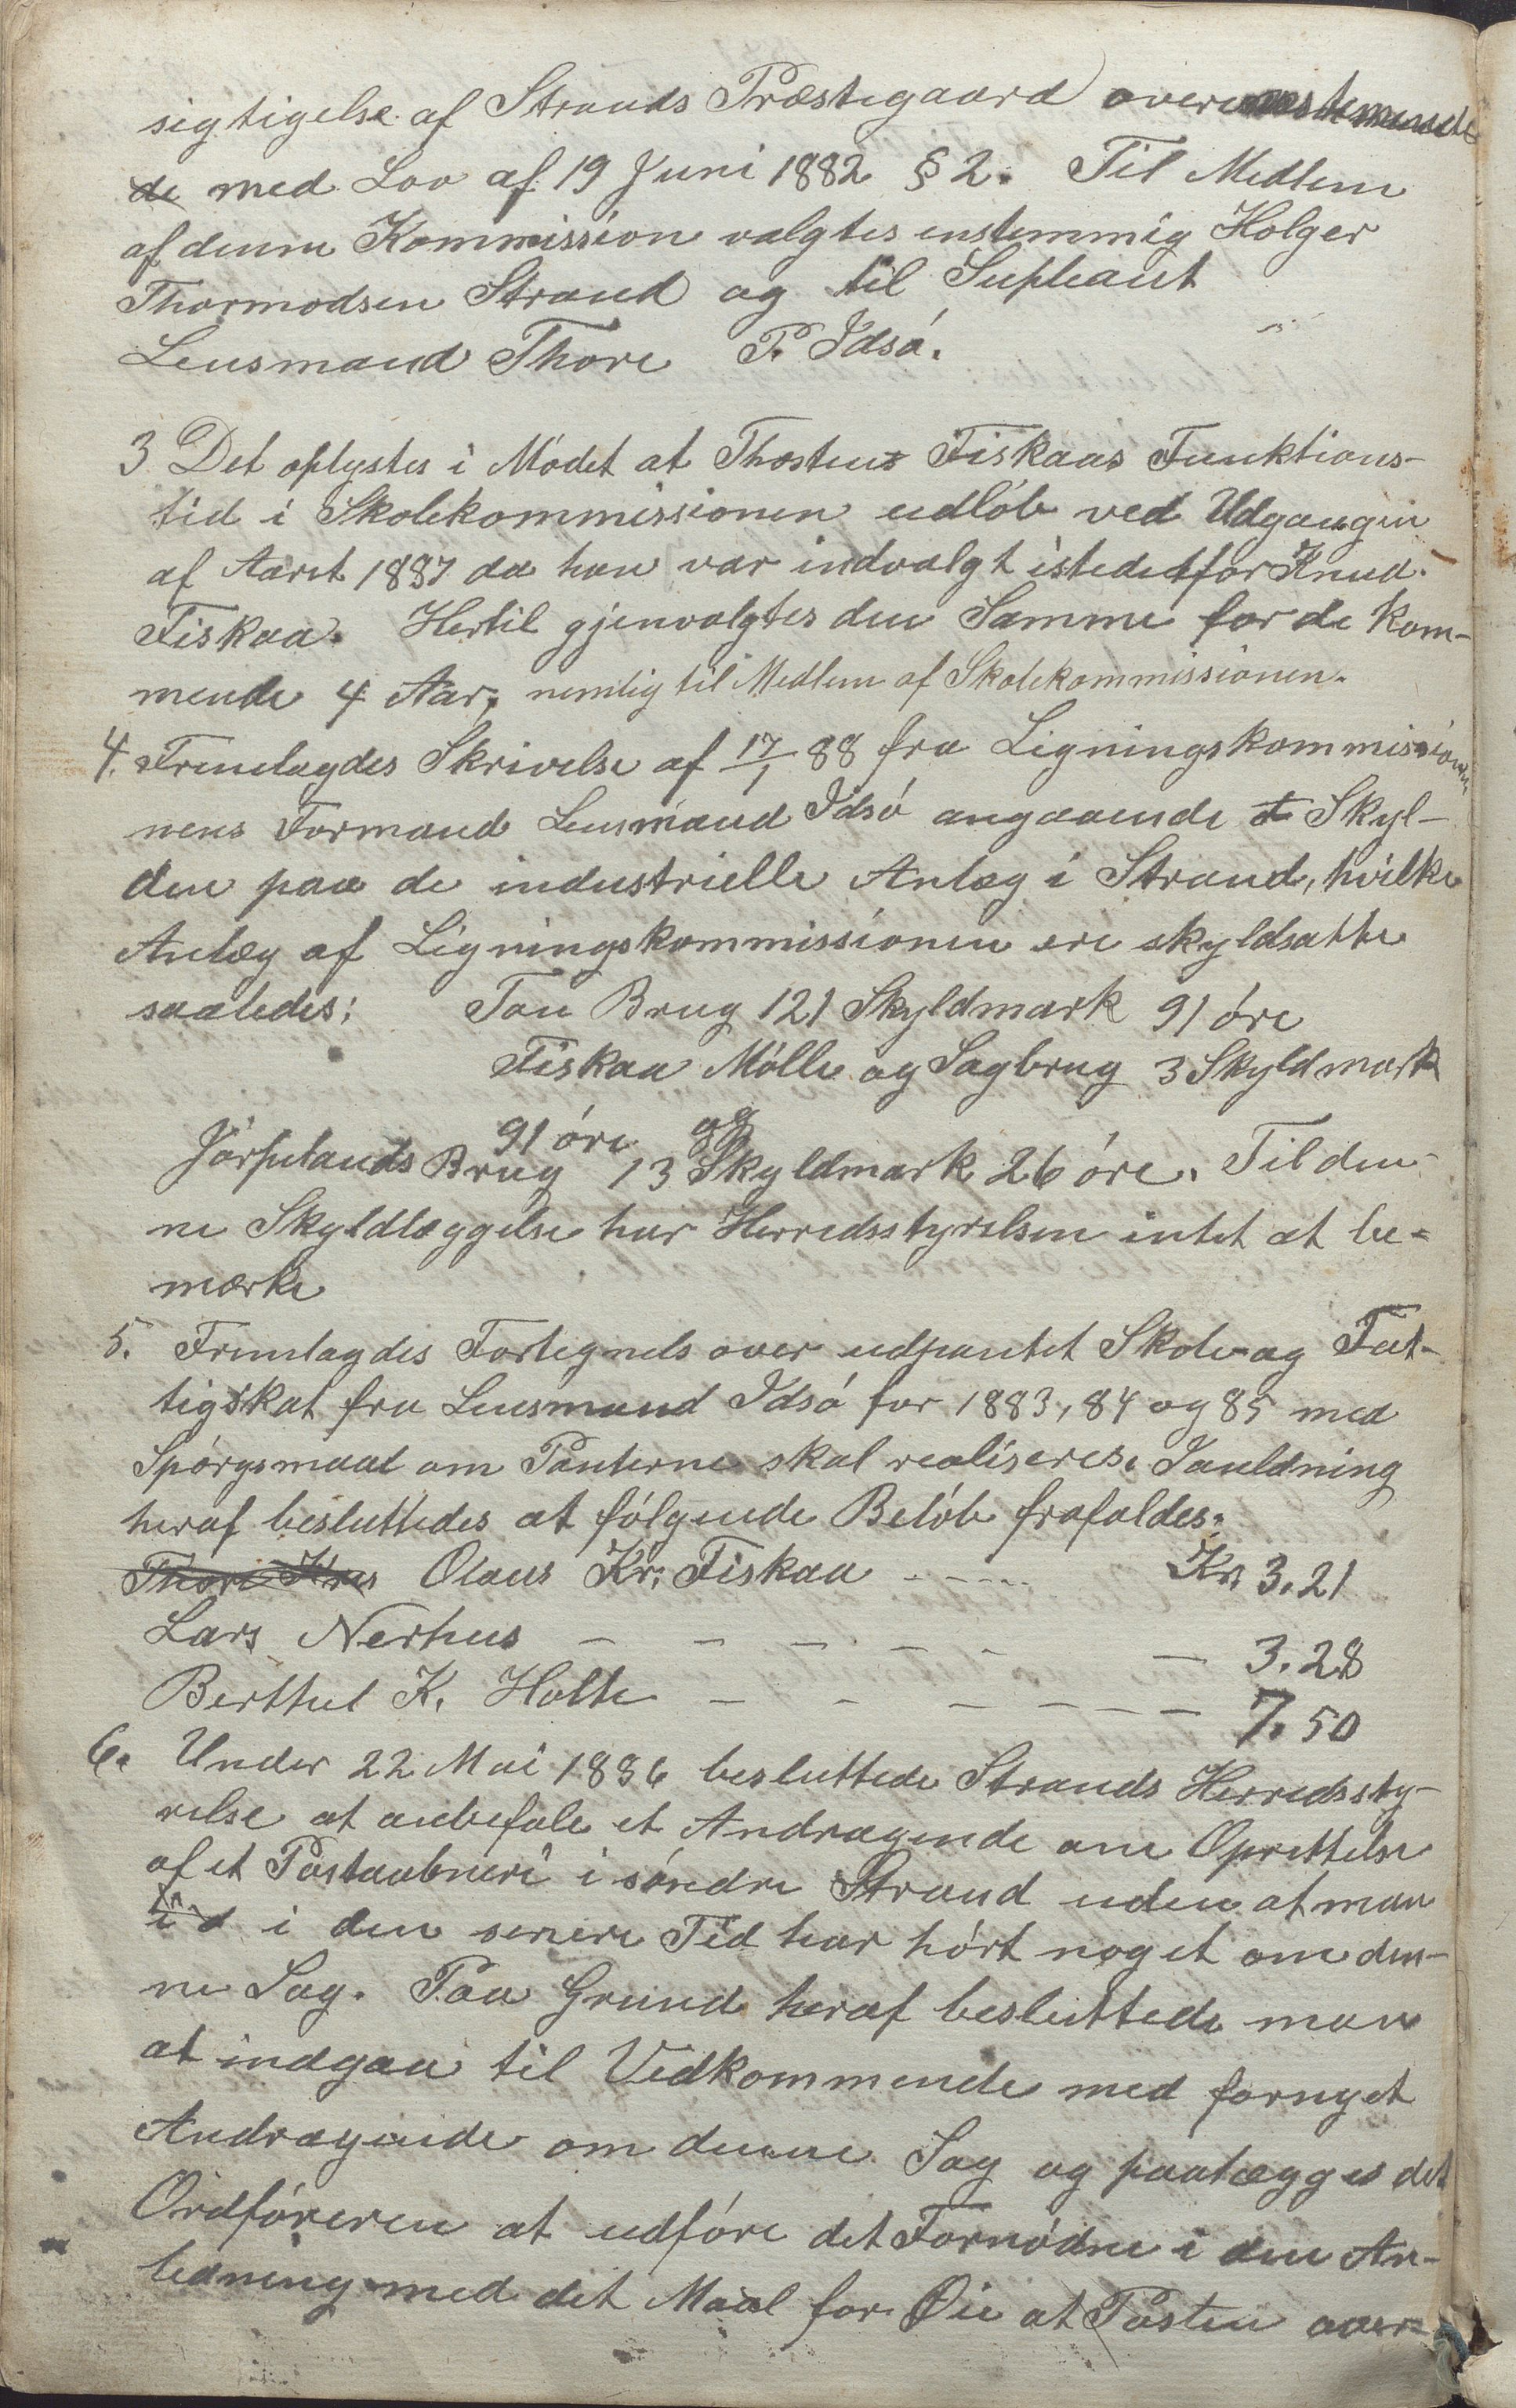 sigtigelse af Strands Præstegaard overensstemmende
de med Lov af 19 Juni 1882 § 2. Til Medlem
af denne Kommission valgtes enstemmig Holger
Thormodsen Strand og til Supleant
Lensmand Thore P. Idsö.
3 Det oplystes i Mödet at Thostens Fiskaas Funktions-
tid i Skolekommissionen udlöb ved Udgangen
af Aaret 1887 da han var indvalgt istedetfor Knud
Fiskaa. Hertil gjenvalgtes den Samme for de kom-
mende 4 Aar, nemlig til Medlem af Skolekommissionen.
4. Fremlagdes Skrivelse af 17/1 88 fra Ligningskommissionen
nens Formand Lensmand Idsö angaaende t Skyl-
den paa de industrielle Anlæg i Strand, hvilke
Anlæg af Ligningskommissionen ere skyldsatte
saaledes: Tau Brug 121 Skyldmark 91 öre
Fiskaa Mölle og Sagbrug 3 Skyldmark
91 öre og
Jörpelands Brug 13 Skyldmark 26 öre. Til den-
ne Skyldlæggelse har Herredsstyrelsen intet at be-
mærke
5. Fremlagdes Fortegnels over udpantet Skole og Fat-
tigskat fra Lensmand Idsö for 1883, 84 og 85 med
Spörgsmaal om Panterne skal realiseres. I anldning
heraf besluttedes at fölgende Belöb frafaldes:
Thore Kres Olaus Kr. Fiskaa - - - - - Kr. 3.21
Lars Nerhus - - - - - - 3.28
Berthel K. Holte - - - - - - 7.50
6. Under 22 Mai 1886 besluttede Strands Herredssty-
relse at anbefale et Andragende om Oprettelse
af et Postaabneri i söndre Strand uden at man
i d i den senere Tid har hört noget om den-
ne Sag. Paa Grund heraf besluttede man
at indgaa til Vedkommende med fornyet
Andragende om denne Sag og paalægges det
Ordföreren at udföre det Fornödne i den An-
ledning med det Maal for Öie at Posten over-